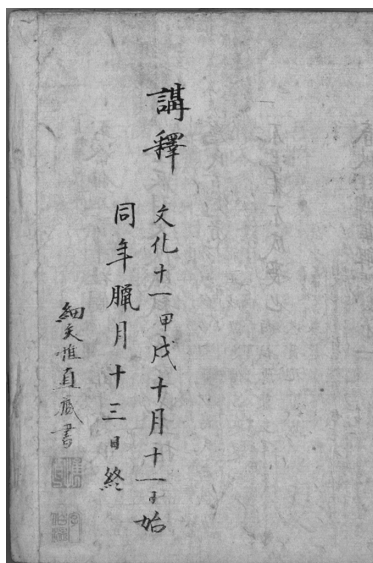 講釋
文化十一甲戌十月十一始
同年臘月十三日終
細矢惟直蔵書